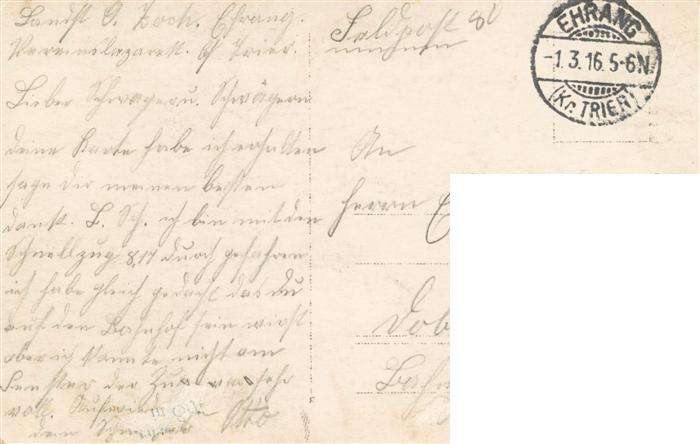 Landst O. Zoch. Ehrang.
Vereinslazarett. b/ Trier.
Lieber Schwager u. Schwägerin
deine Karte habe ich erhalten
sage dir meinen besten
dank. L. Sch. ich bin mit den
Schnellzug 8,17 durch gefahren
ich habe gleich gedacht das du
auf den Bahnhof sein wirst
aber ich konnte nicht am
Fenster der Zug war sehr
voll.
dein Schwager Otto
Feldpost
EHRANG
-1.3.16.5-6N.
(Kr. TRIER)
An
Herrn